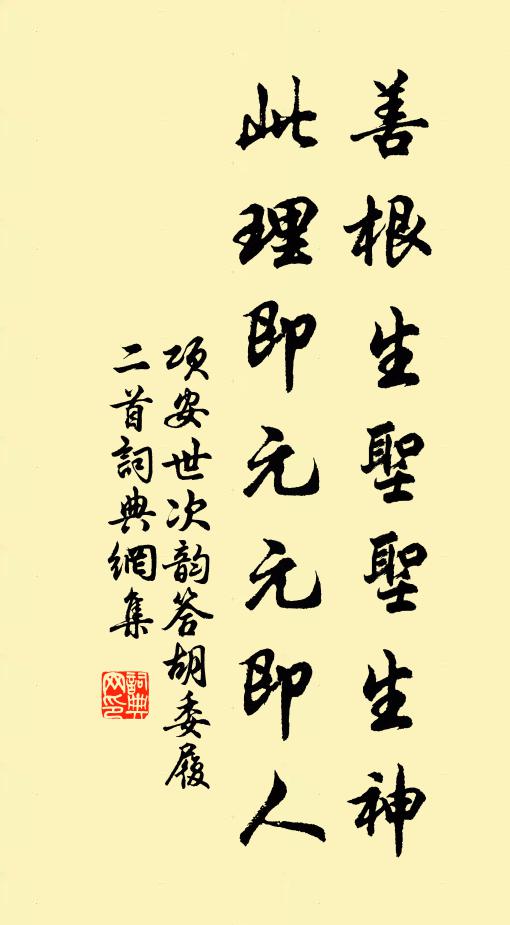 善根生聖聖生神
此理即元元即人
項安世次韵答胡委履
二首詞典網集
詞典網印